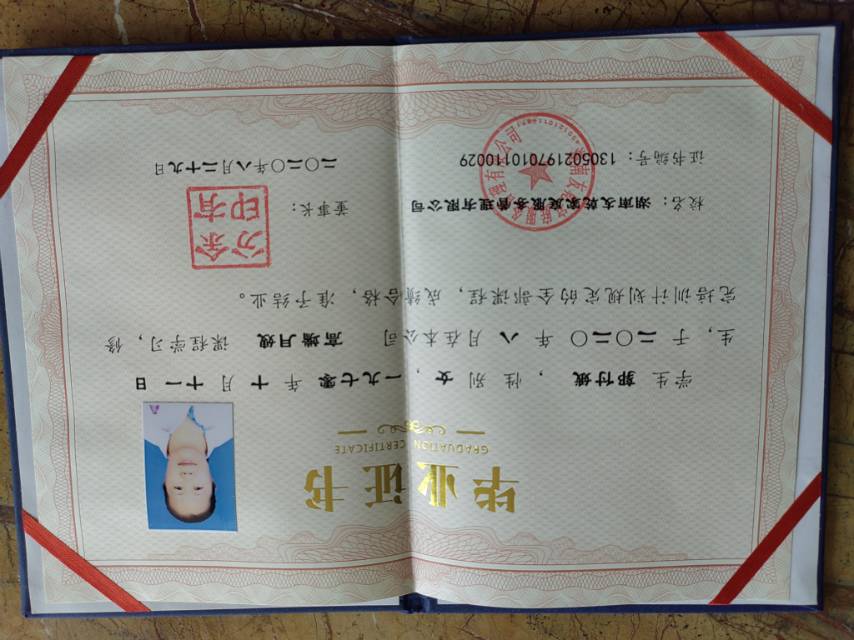 毕业证书
GRADUATION CERTIFICATE
学生 郭付娥 ，性 别 女 ，一九七零 年 十 月 十一 日
生，于 二〇二〇 年 八 月在本公司 高端月嫂 课程学习，修
完培训计划规定的全部课程，成绩合格，准予结业。
校名：湖南友乾家庭服务管理有限公司
董事长：
证书编号：130502197010110029
二〇二〇年八月二十九日